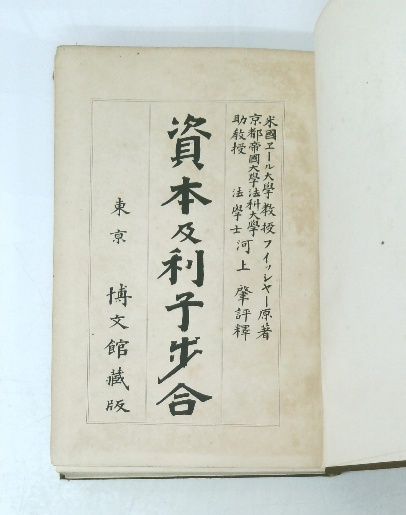 米國エール大學教授フィッシャー原著
京都帝國大學法科大學
助敎授 法學士 河上肇評釋
資本及利子步合
東京 博文館藏版